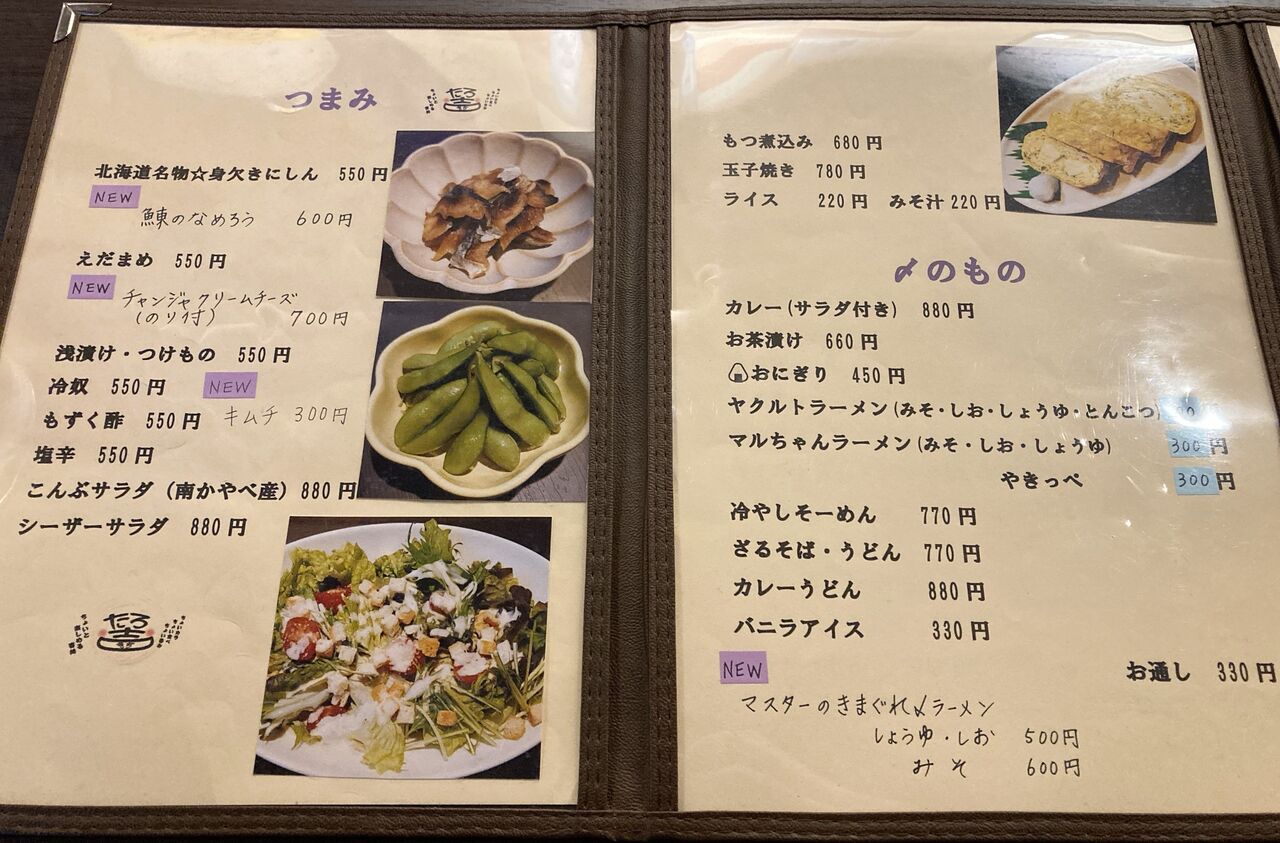 つまみ
たる壺
北海道名物☆身欠きにしん 550円
NEW
鰊のなめろう 600円
えだまめ 550円
NEW
チャンジャクリームチーズ
(のり付) 700円
浅漬け・つけもの 550円
冷奴 550円
NEW
もずく酢 550円
キムチ 300円
塩辛 550円
こんぶサラダ (南かやべ産) 880円
シーザーサラダ 880円
もつ煮込み 680円
玉子焼き 780円
ライス 220円 みそ汁 220円
〆のもの
カレー(サラダ付き) 880円
お茶漬け 660円
おにぎり 450円
ヤクルトラーメン(みそ・しお・しょうゆ・とんこつ)
マルちゃんラーメン(みそ・しお・しょうゆ) 300円
やきっぺ 300円
冷やしそーめん 770円
ざるそば・うどん 770円
カレーうどん 880円
バニラアイス 330円
NEW
お通し 330円
マスターのきまぐれ〆ラーメン
しょうゆ・しお 500円
みそ 600円